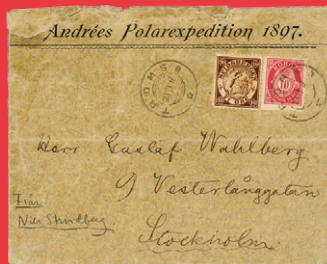 Andrées Polarexpedition 1897.
TROMSØ
10
Herr Gustaf Wahlberg
9 Vesterlånggatan
Stockholm
Från
Nils Strindberg.